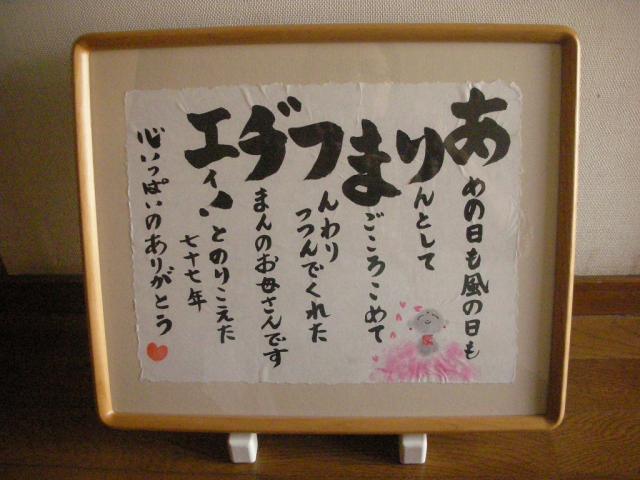 あめの日も風の日も
りんとして
まごころこめて
フんわり
つつんでくれた
ヂまんのお母さんです
エィッとのりこえた
七十七年
心いっぱいのありがとう